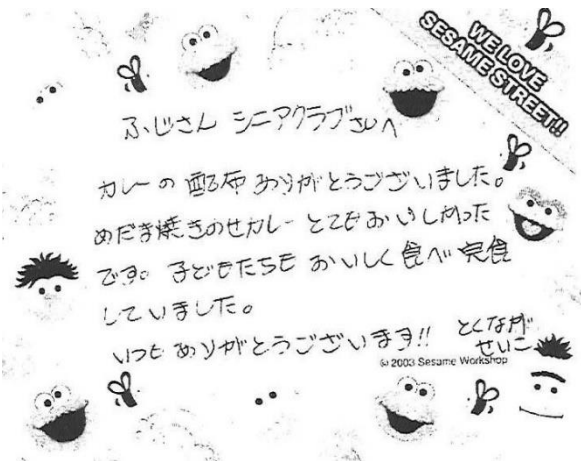 WE LOVE
SESAME STREET!!
ふじさん シニアクラブさんへ
カレーの 配布 ありがとうございました。
めだま焼きのせカレー とてもおいしかった
です。子どもたちも おいしく食べ 完食
していました。
いつも ありがとうございます!!
とくながせいこ
© 2003 Sesame Workshop